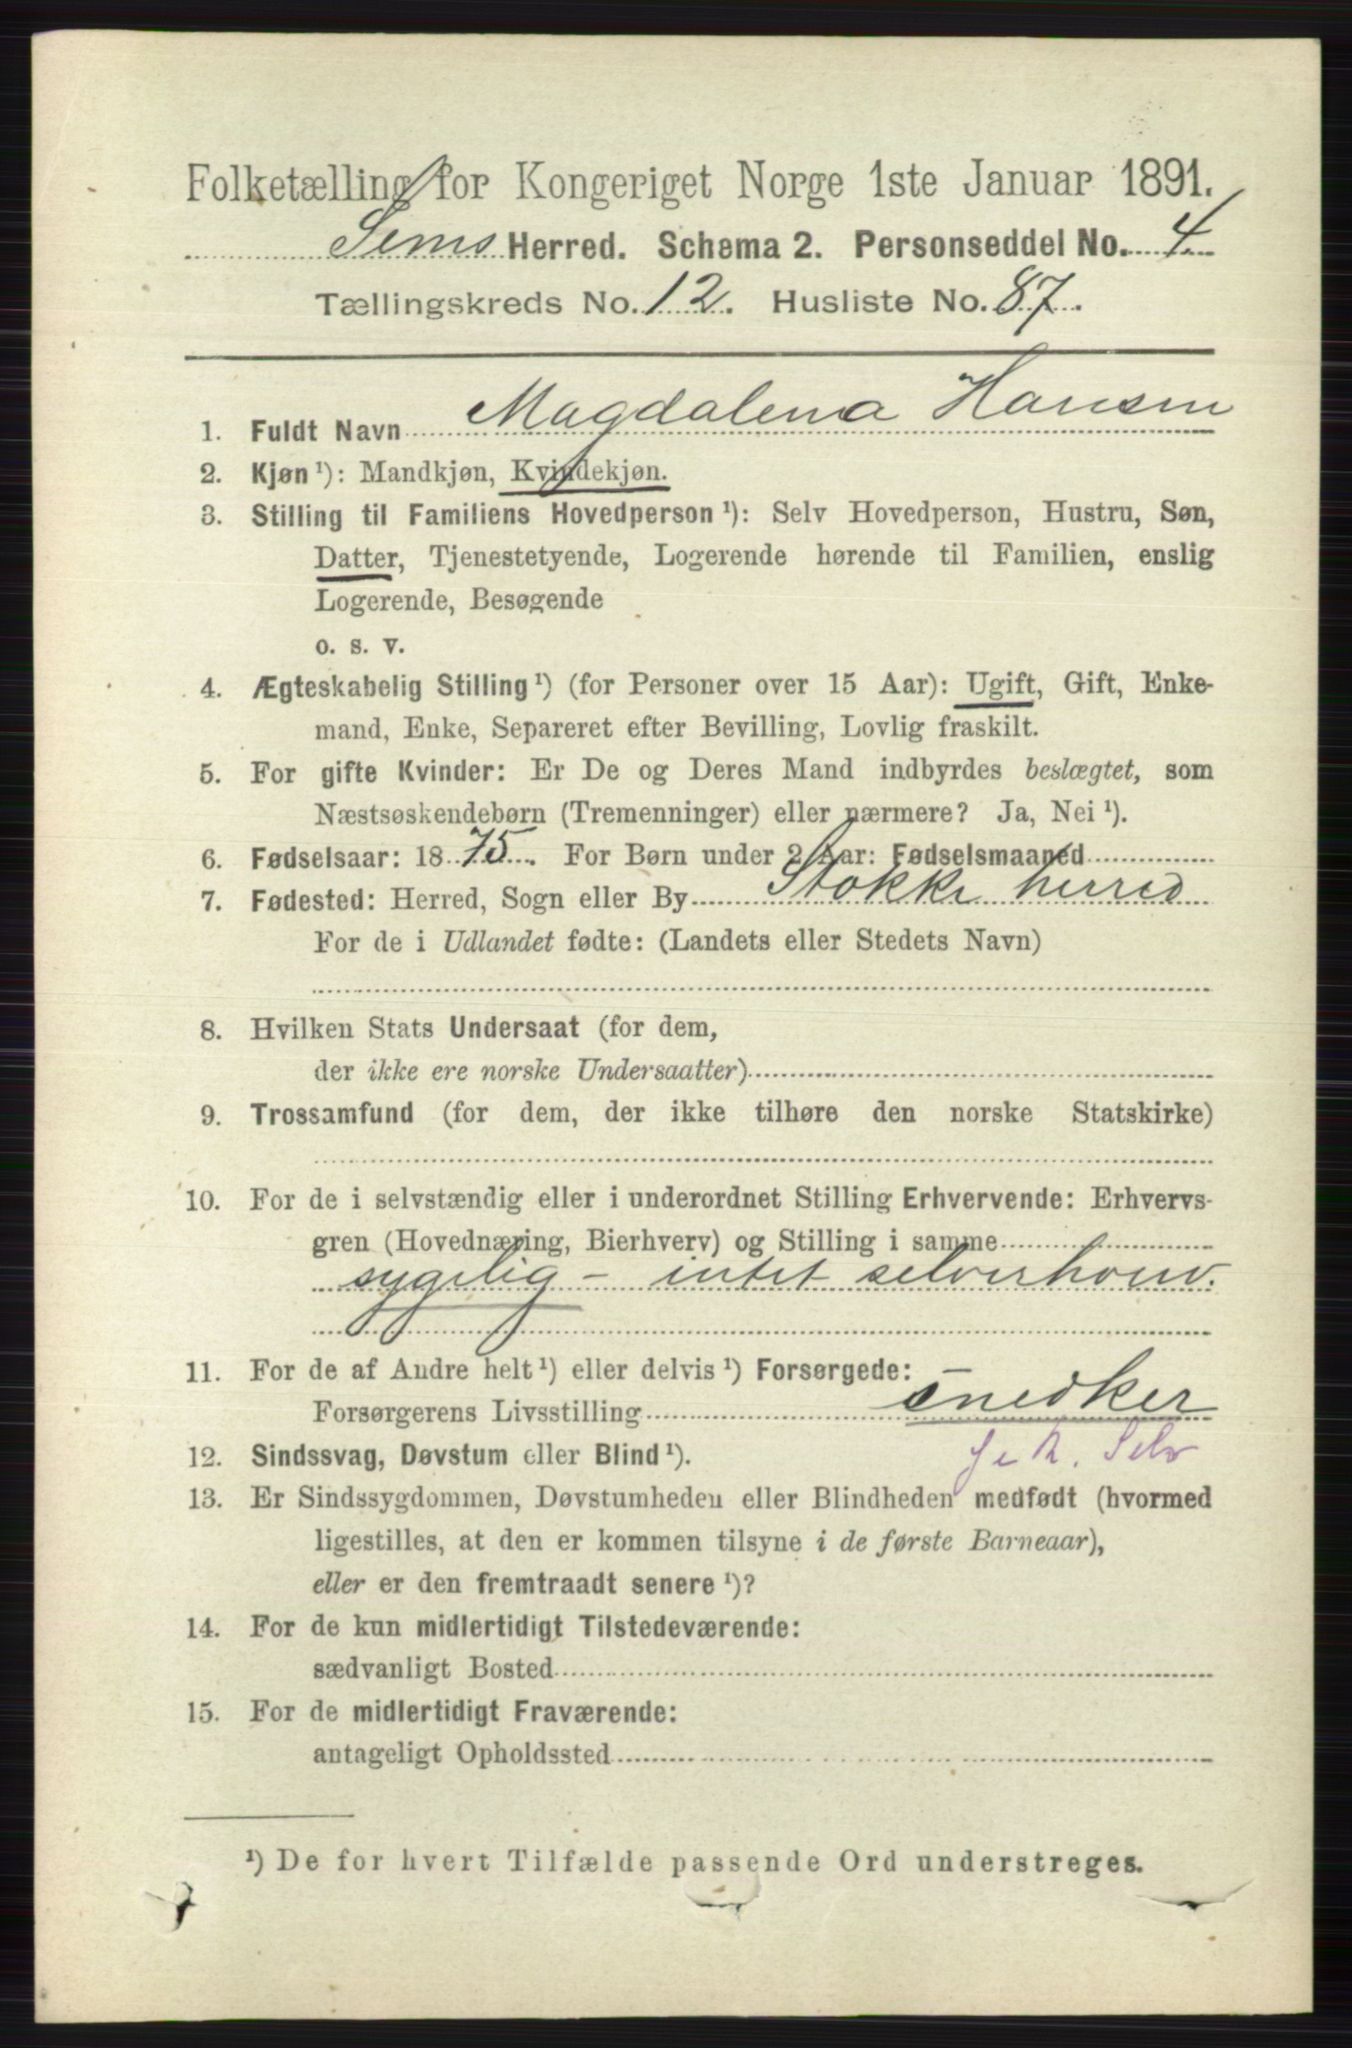 Folketælling for Kongeriget Norge 1ste Januar 1891.
Sems Herred. Schema 2. Personseddel No. 4.
Tællingskreds No. 12. Husliste No. 87.
1. Fuldt Navn Magdalena Hansen
2. Kjøn ¹): Mandkjøn, Kvindekjøn.
3. Stilling til Familiens Hovedperson ¹): Selv Hovedperson, Hustru, Søn,
Datter, Tjenestetyende, Logerende hørende til Familien, enslig
Logerende, Besøgende
o. s. v.
4. Ægteskabelig Stilling ¹) (for Personer over 15 Aar): Ugift, Gift, Enke-
mand, Enke, Separeret efter Bevilling, Lovlig fraskilt.
5. For gifte Kvinder: Er De og Deres Mand indbyrdes beslægtet, som
Næstsøskendebørn (Tremenninger) eller nærmere? Ja, Nei ¹).
6. Fødselsaar: 1875. For Børn under 2 Aar: Fødselsmaaned
7. Fødested: Herred, Sogn eller By Stokke herred
For de i Udlandet fødte: (Landets eller Stedets Navn)
8. Hvilken Stats Undersaat (for dem,
der ikke ere norske Undersaatter)
9. Trossamfund (for dem, der ikke tilhøre den norske Statskirke)
10. For de i selvstændig eller i underordnet Stilling Erhvervende: Erhvervs-
gren (Hovednæring, Bierhverv) og Stilling i samme
sygelig - intet selverhverv.
11. For de af Andre helt ¹) eller delvis ¹) Forsørgede:
Forsørgerens Livsstilling snedker
12. Sindssvag, Døvstum eller Blind ¹). Selv
13. Er Sindssygdommen, Døvstumheden eller Blindheden medfødt (hvormed
ligestilles, at den er kommen tilsyne i de første Barneaar),
eller er den fremtraadt senere ¹)?
14. For de kun midlertidigt Tilstedeværende:
sædvanligt Bosted
15. For de midlertidigt Fraværende:
antageligt Opholdssted
¹) De for hvert Tilfælde passende Ord understreges.